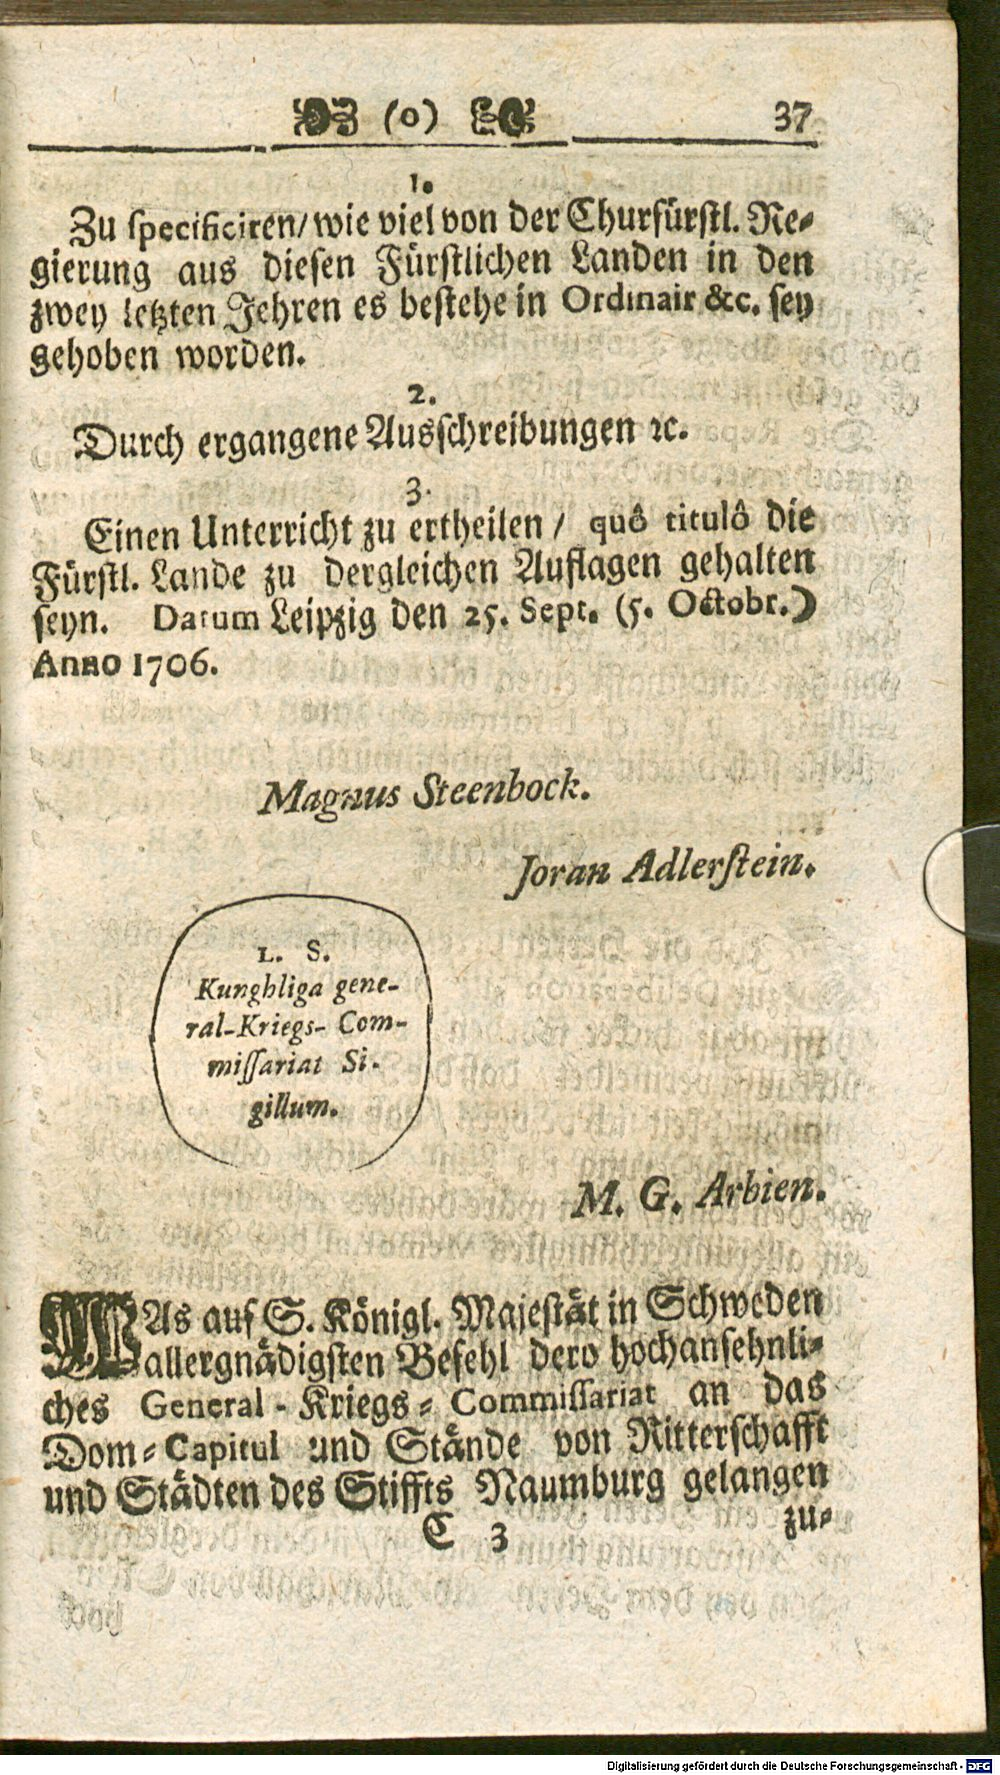 (0) 37
1.
Zu specificiren/ wie viel von der Churfürstl. Re-
gierung aus diesen Fürstlichen Landen in den
zwey letzten Jehren es bestehe in Ordinair &c. sey
gehoben worden.
2.
Durch ergangene Ausschreibungen ꝛc.
3.
Einen Unterricht zu ertheilen / quô titulô die
Fürstl. Lande zu dergleichen Auflagen gehalten
seyn. Datum Leipzig den 25. Sept. (5. Octobr.)
Anno 1706.
Magnus Steenbock.
Joran Adlerstein.
L. S.
Kunghliga gene-
ral-Kriegs-Com-
missariat Si-
gillum.
M. G. Arbien.
WAs auf S. Königl. Majestät in Schweden
allergnädigsten Befehl dero hochansehnli-
ches General-Kriegs-Commissariat an das
Dom-Capitul und Stände von Ritterschafft
und Städten des Stiffts Naumburg gelangen
C 3 zu-
Digitalisierung gefördert durch die Deutsche Forschungsgemeinschaft - DFG